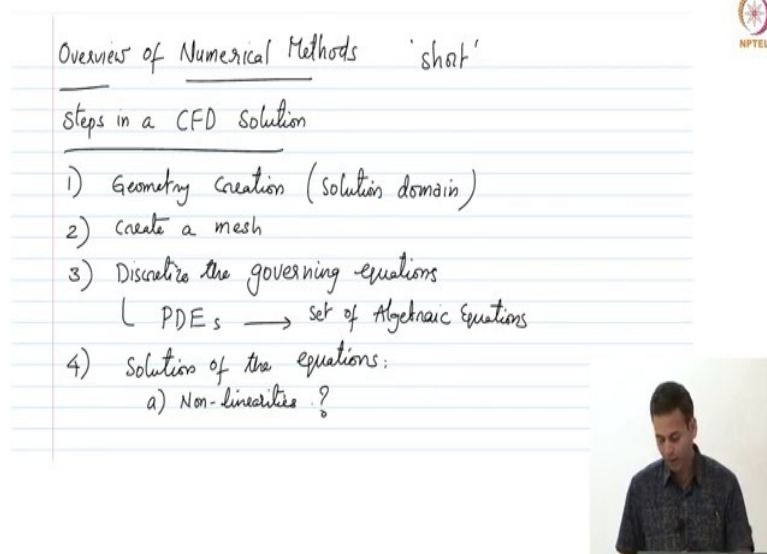 Overview of Numerical Methods 'short'
Steps in a CFD Solution
1) Geometry Creation (Solution domain)
2) Create a mesh
3) Discretize the governing equations
PDEs → Set of Algebraic Equations
4) Solution of the equations:
a) Non-linearities ?
NPTEL